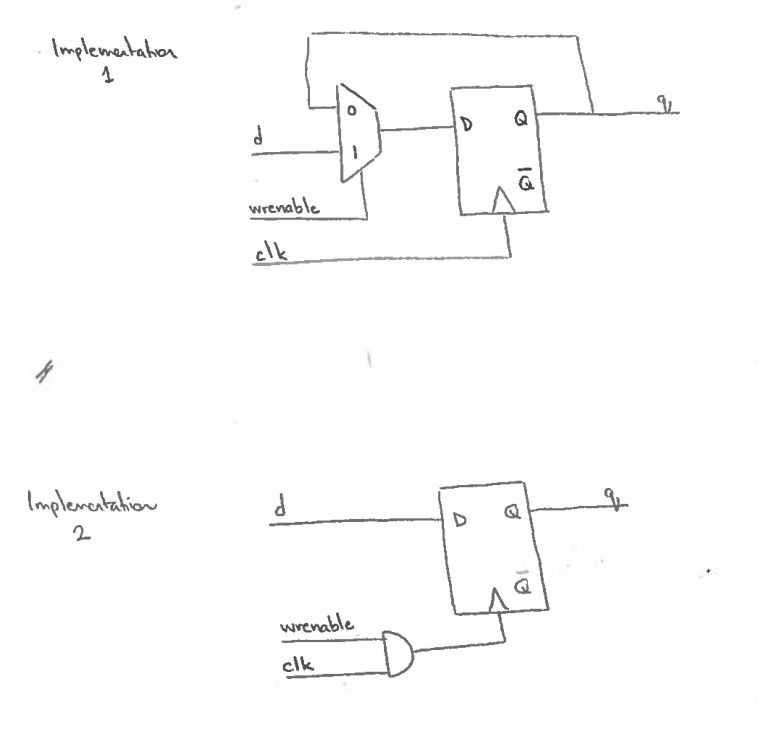 Implementation
1
0
1
d
wrenable
clk
D Q
Q̅
q
Implementation
2
d
D Q
Q̅
q
wrenable
clk